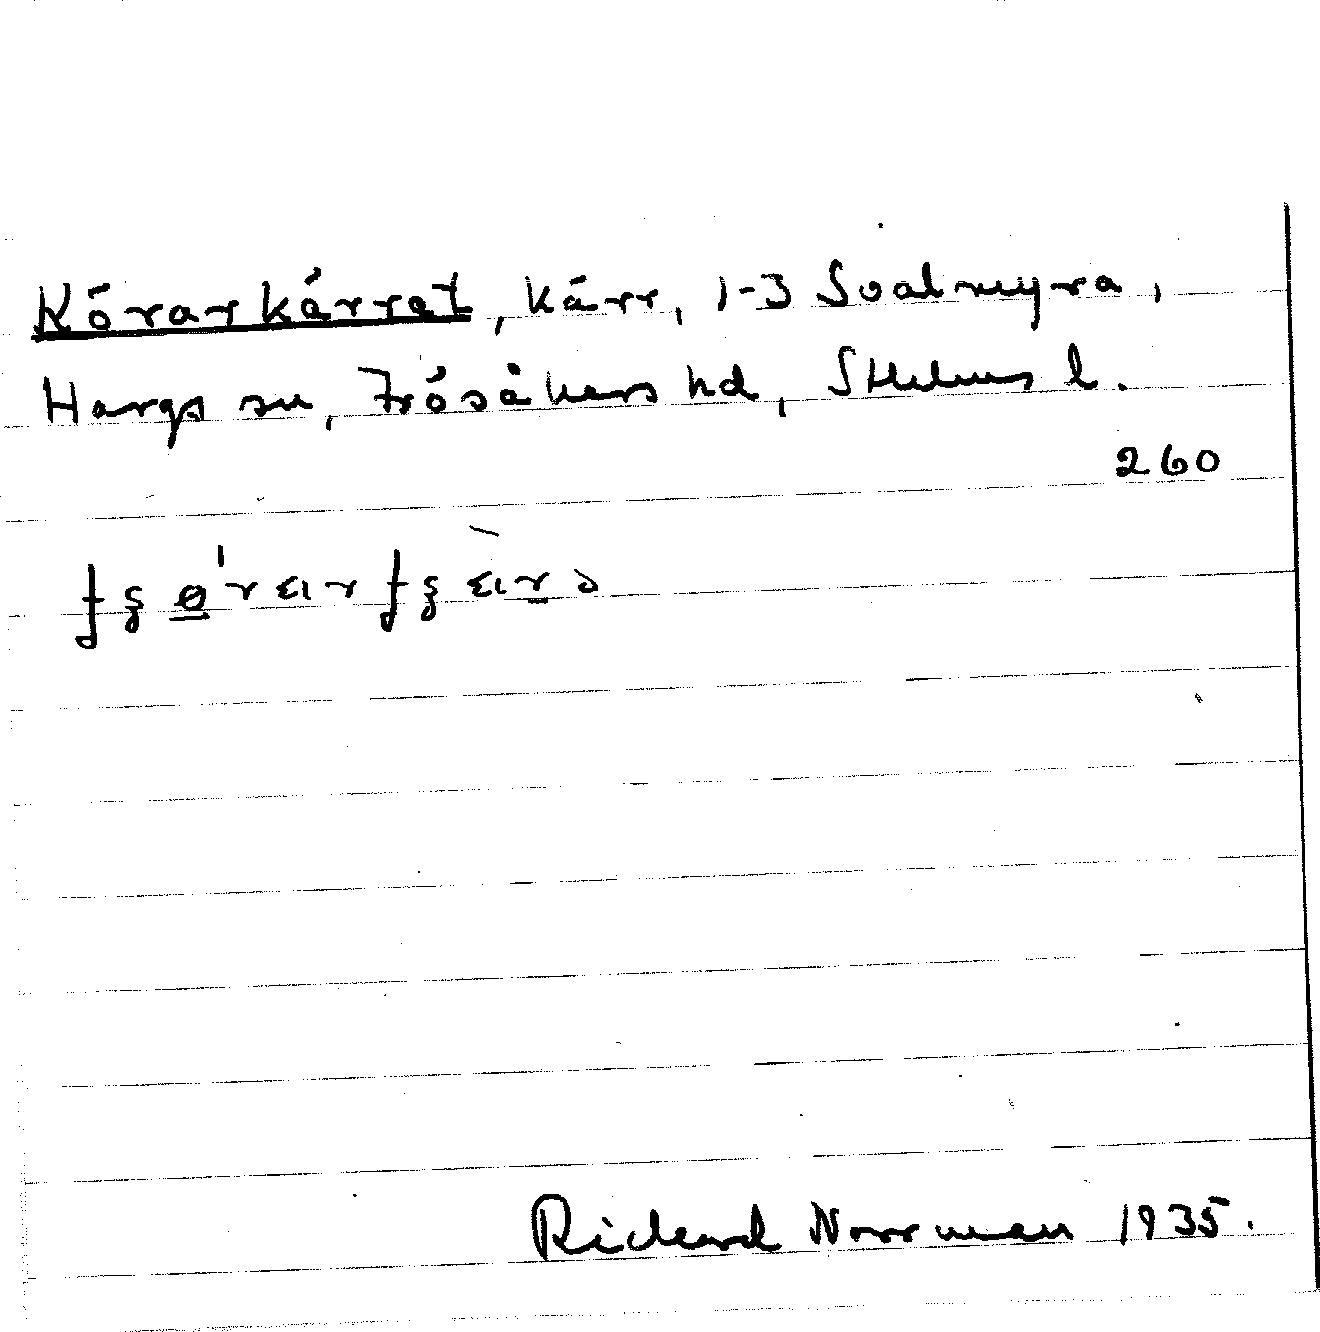 Körarkärret, kärr, 1-3 Svalmyra,
Hargs sn, Frösåkers hd, Sthlms l.
260
Rickard Norrman 1935.